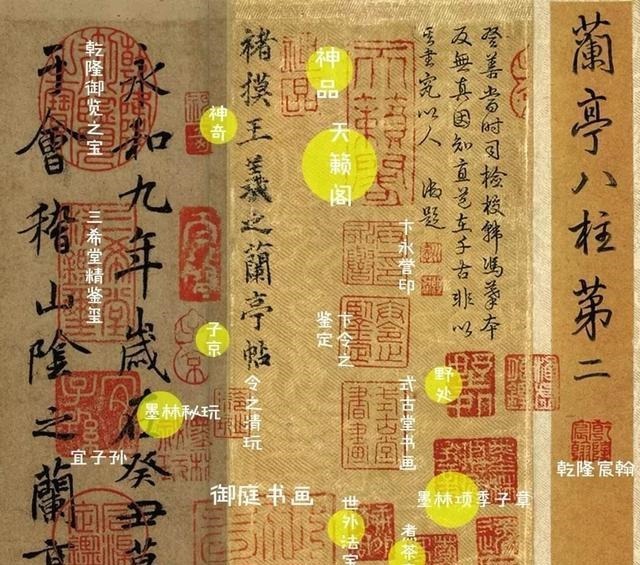 蘭亭八柱第二
乾隆宸翰
登善當时司捡校韩馮摹本
反無真因知直道在千古非以
書完以人 御题
神品
天籁阁
卞永誉印
卞令之鉴定
式古堂书画
野处
墨林项季子章
世外法宝
煮茶
褚摸王羲之蘭亭帖
令之清玩
御庭书画
神奇
子京
永和九年歲在癸丑暮
墨林秘玩
于會稽山陰之蘭亭
乾隆御览之宝
三希堂精鉴玺
宜子孙